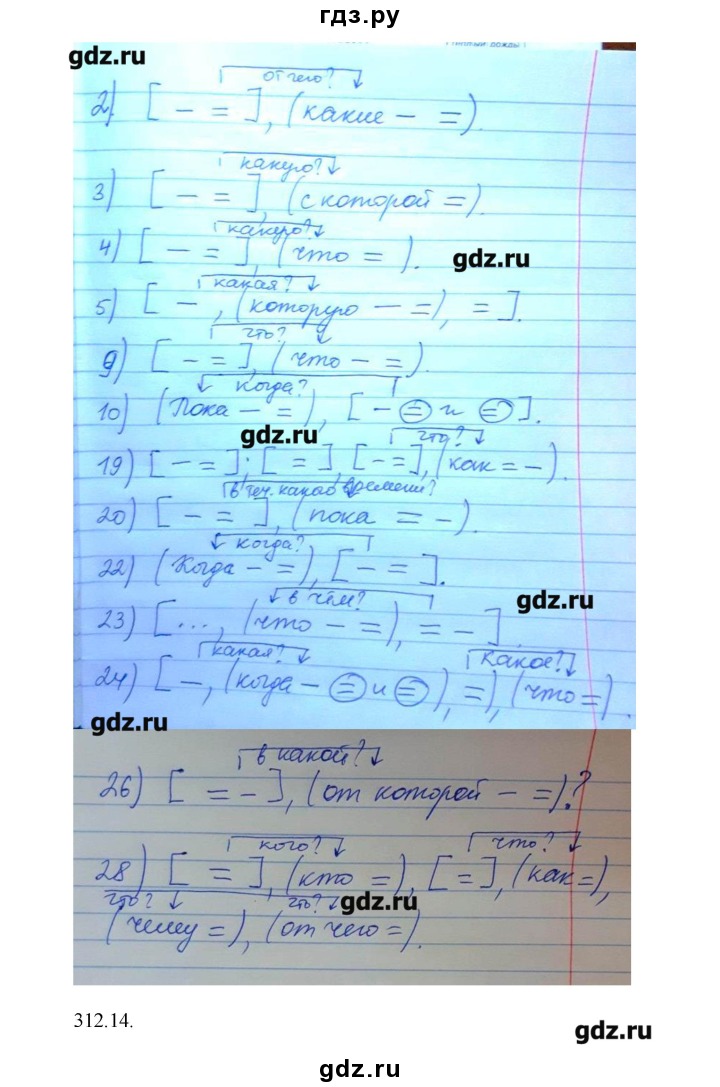 гдз.ру
gdz.ru
от чего?
2) [ – = ], (какие – = ).
какую?
3) [ – = ], (с которой = ).
какую?
4) [ – = ], (что = ).
gdz.ru
какая?
5) [ – , (которую – = ), = ].
что?
9) [ – = ], (что – = ).
когда?
10) (Пока – = ), [ – = и = ].
gdz.ru
что?
19) [ – = ]: [ = ], [ – = ], (как = – ).
в теч. какого времени?
20) [ – = ], (пока = – ).
когда?
22) (Когда – = ), [ – = ].
в чём?
gdz.ru
23) [ ..., (что – = ), = – ]
какая? какое?
24) [ – , (когда – = и = ), = ), (что = ).
gdz.ru
в какой?
26) [ = – ], (от которой – = )?
кого? что?
28) [ = ], (кто = ), [ = ], (как = ),
что? что?
gdz.ru
(чему = ), (от чего = ).
312.14.
gdz.ru
gdz.ru